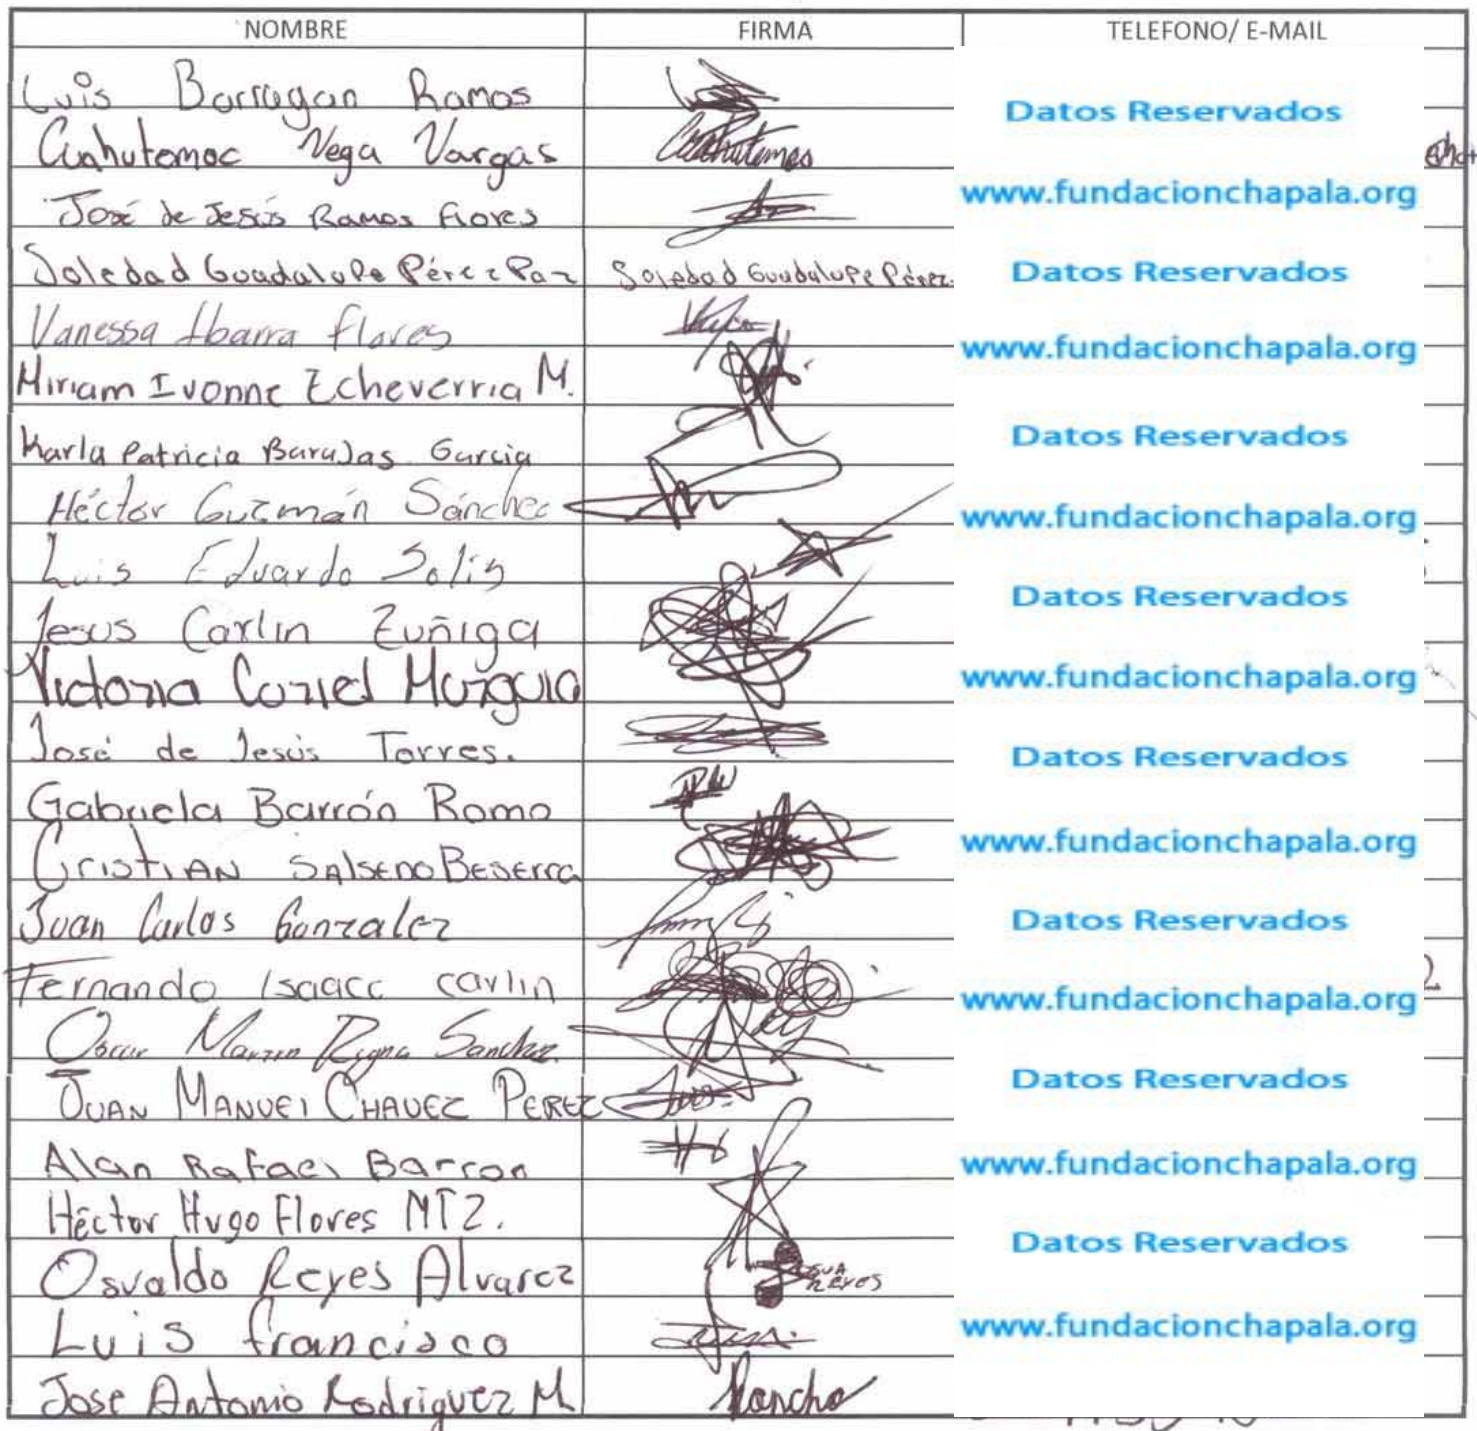 NOMBRE FIRMA TELEFONO/ E-MAIL
Luis Barragan Ramos
Datos Reservados
Cuahutemoc Vega Vargas Cuahutemoc
www.fundacionchapala.org
José de Jesús Ramos Flores
Soledad Guadalupe Pérez Paz Soledad Guadalupe Pérez. Datos Reservados
Vanessa Ibarra flores
www.fundacionchapala.org
Miriam Ivonne Echeverria M.
Karla Patricia Barajas Garcia Datos Reservados
Héctor Guzmán Sánchez www.fundacionchapala.org
Luis Eduardo Solis
Datos Reservados
Jesus Carlin Zuñiga
Victoria Curiel Munguia www.fundacionchapala.org
José de Jesús Torres. Datos Reservados
Gabriela Barrón Romo
www.fundacionchapala.org
Cristian Salseno Beserra
Juan Carlos Gonzalez Datos Reservados
Fernando Isaacc carlin www.fundacionchapala.org
Sanchez
Datos Reservados
Juan Manuel Chavez Perez
Alan Rafael Barron www.fundacionchapala.org
Héctor Hugo Flores MTZ.
Datos Reservados
Osvaldo Reyes Alvarez
Luis francisco www.fundacionchapala.org
Jose Antonio Rodriguez M. Poncho